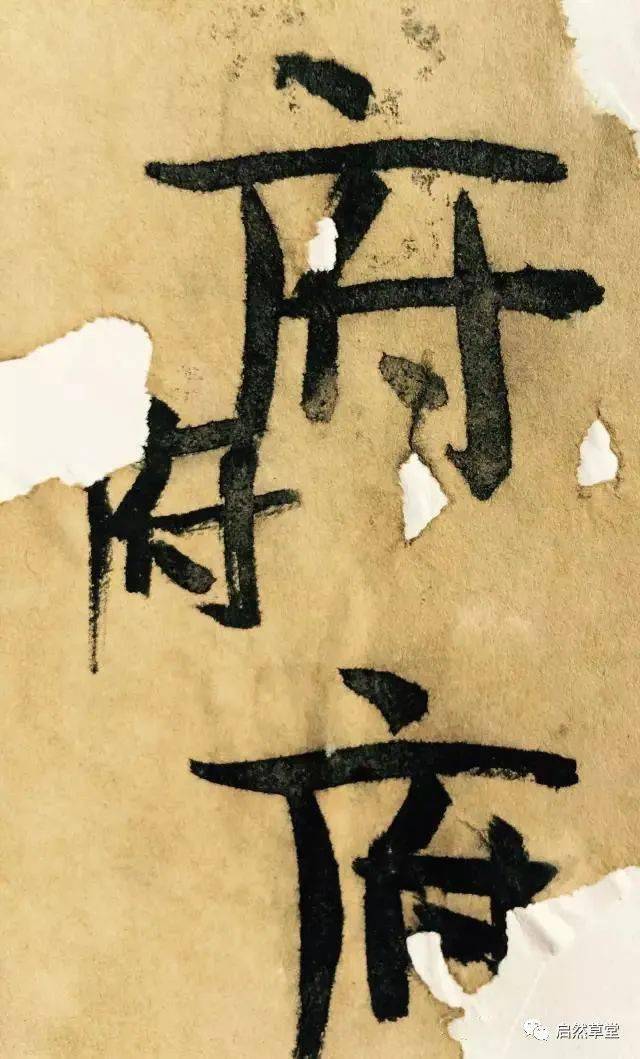 府
府
府
启然草堂